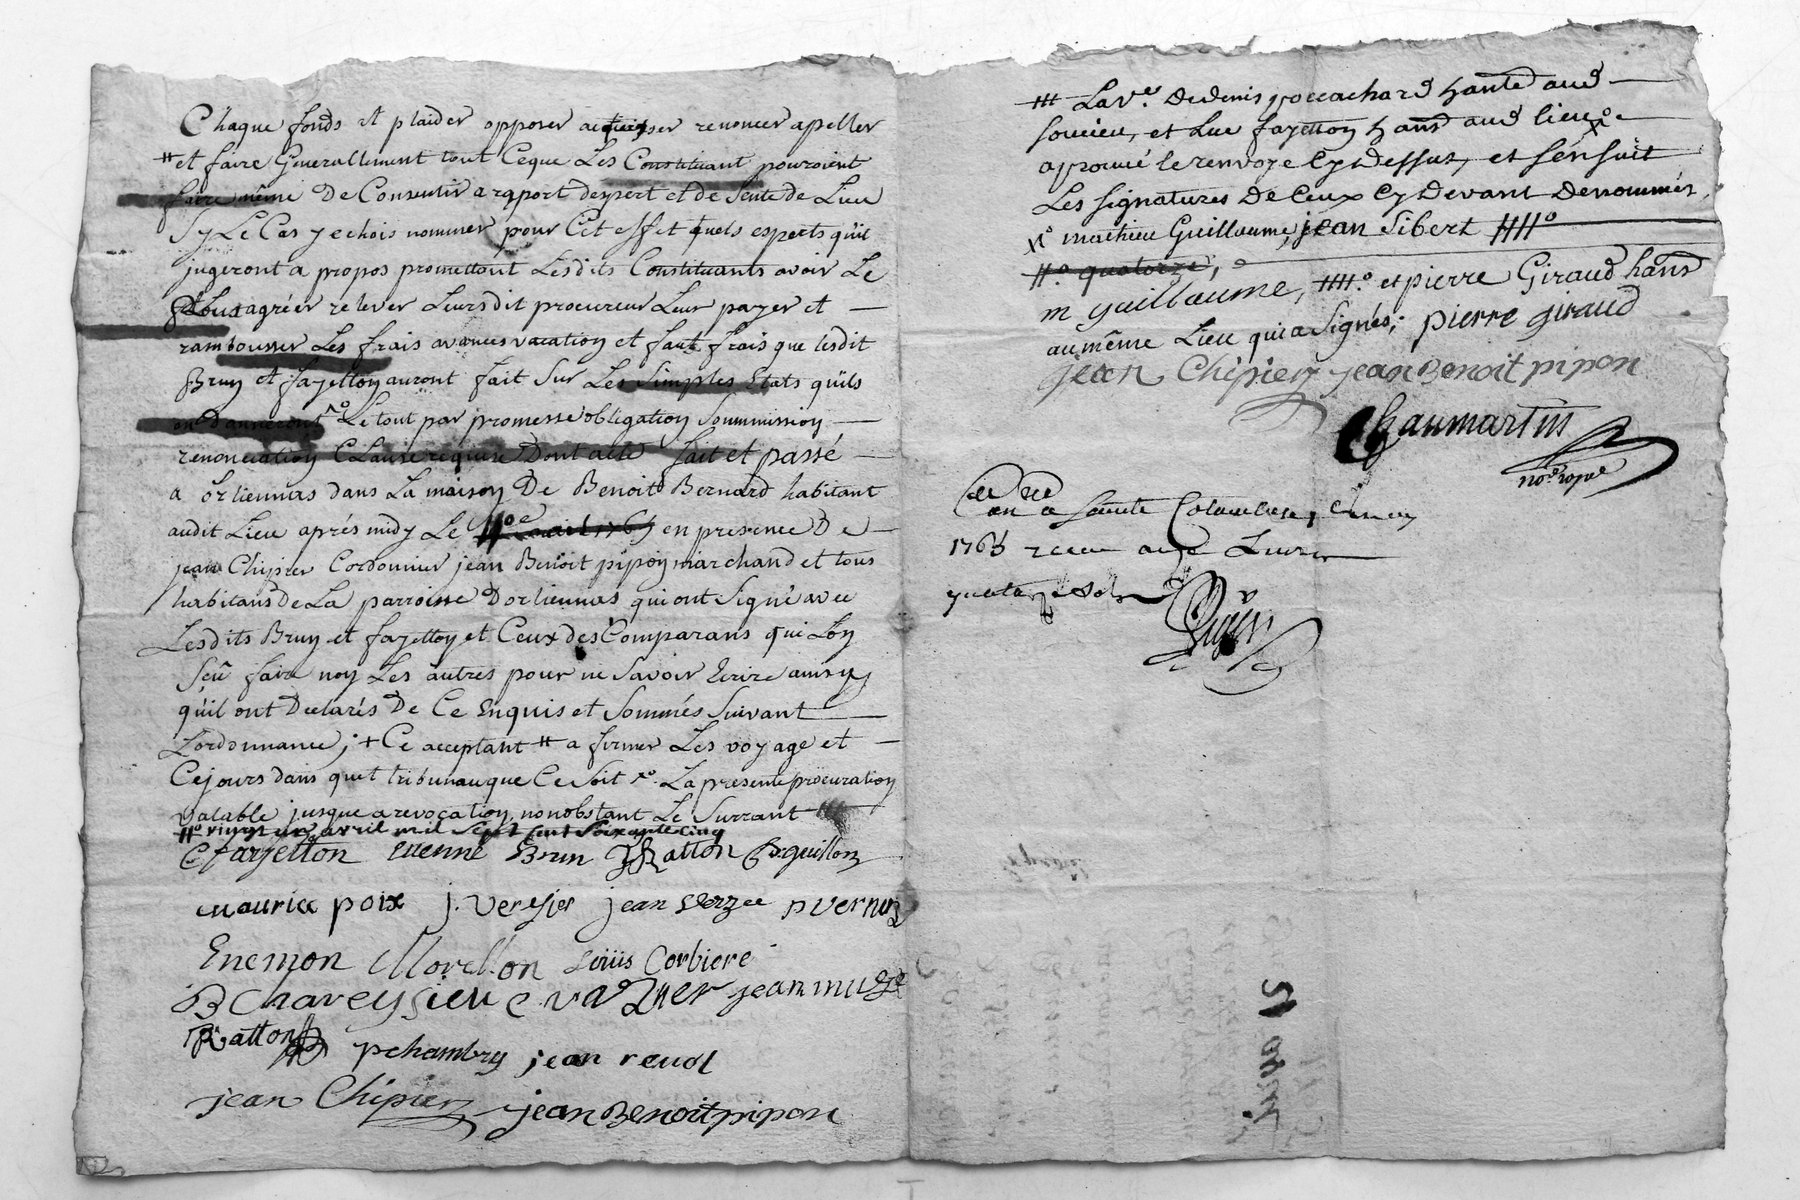 Chaque fonds et plaider opposer renoncer apeller
et faire Generallement tout Ceque Les Constituant pouroient
faire même De Consentir a raport despert et de Lieu
Sy Le Cas y echois nommer pour Cet effet quels esperts quil
jugeront a propos promettont Lesdits Constituants avoir Le
agréer relever Leursdit procureur Leur payer et
rambourser Les frais avances vacation et faut frais que lesdit
Brun et fayetton auront fait Sur Les Simples Etats quils
en donneront Le tout par promesse obligation Soummission
renonciation Clause requise Dont acte fait et passé
a orliennas dans La maison De Benoit Bernard habitant
audit Lieu aprés midy Le avril 1765 en presence De
jean Chipier Cordonnier jean Benoit pipon marchand et tous
habitans de La parroisse Dorliennas qui ont Signé avec
Lesdits Brun et fayetton et Ceux des Comparans qui Lon
Seû faire non Les autres pour ne Savoir Ecrire ainsy
quil ont Declarés De Ce Enquis et Sommés Suivant
Lordonnance ; + Ce acceptant # a firmer Les voyage et
Cejours dans quel tribunauque Ce Soit xo. La presente procuration
valable jusque a revocation nonobstant Le Surrant
vingt un avril mil Sept Cent Soixante Cinq
fayetton etienne Brun Ratton guillon
Maurice poix j. Vereysier jean Verzee p vernus
Enemon Morellon Louis Corbiere
B Charveysieu jean
Ratton pchambry jean reval
jean Chipier jean Benoit pipon
La ve. De denis hante aud
Soucieu, et Luc fayetton hant aud lieu
aprouvé le renvoye Cy Dessus, et sensuit
Les signatures De Ceux Cy Devant Denommés
xo mathieu Guillaume, jean Sibert ####o
##o quatorze,
m guillaume, ####.o et pierre Giraud hant
au même Lieu qui a Signés ; pierre giraud
jean Chipier jean Benoit pipon
Chaumartin
nore royal
a Sainte Colombe,
1765 recu Livres
quatorze Sols